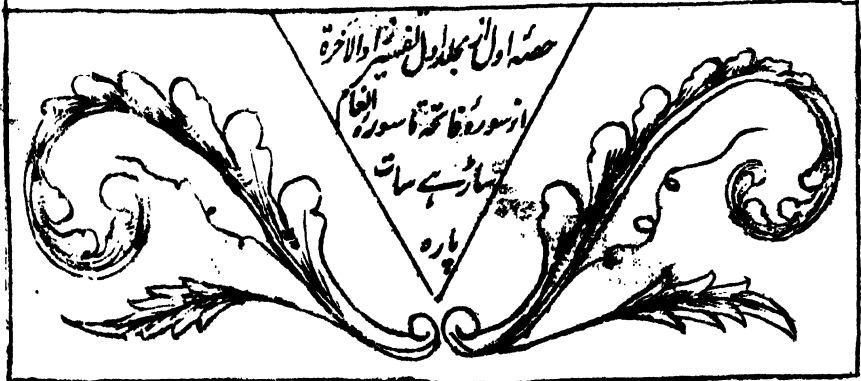 حصّہ اول از مجلد اول تفسیر زاد الآخرۃ
از سورۂ فاتحہ تا سورۂ انعام
ساڑہے سات
پارہ